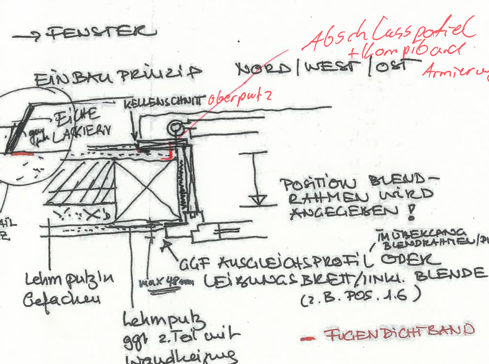 → FENSTER
Abschlussprofil
+ Kompriband
Armierung
EINBAUPRINZIP NORD/WEST/OST
KELLENSCHNITT Oberputz
EICHE
LACKIERN
POSITION BLEND-
RAHMEN WIRD
ANGEGEBEN!
IM ÜBERGANG
BLENDRAHMEN/
GGF AUSGLEICHSPROFIL ODER
LEIBUNGSBRETT/INKL. BLENDE
(z.B. POS. 1.6)
max 48mm
Lehmputz in
Gefachen
Lehmputz
ggf z. Teil mit
Wandheizung
- FUGENDICHTBAND